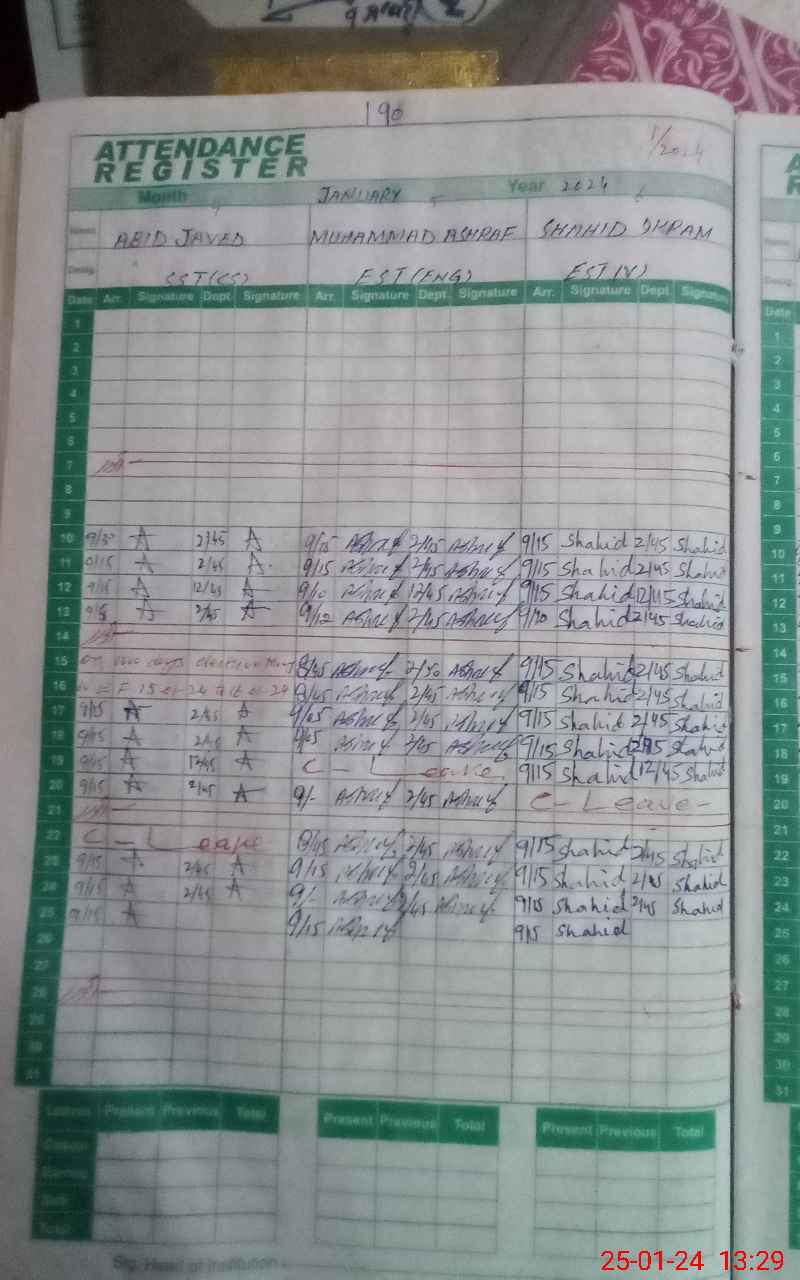 190
ATTENDANCE
REGISTER
1/2024
Month JANUARY Year 2024
4 5 6
Name ABID JAVED MUHAMMAD ASHRAF SHAHID IKRAM
Desig. SST(CS) EST(ENG) EST(V)
Date Arr. Signature Dept Signature Arr. Signature Dept. Signature Arr. Signature Dept. Signature
1
2
3
4
5
6
7
8
9
10 9/30 A 2/45 A 9/15 Ashraf 2/45 Ashraf 9/15 Shahid 2/45 Shahid
11 9/15 A 2/45 A 9/15 Ashraf 2/45 Ashraf 9/15 Shahid 2/45 Shahid
12 9/15 A 12/45 A 9/10 Ashraf 12/45 Ashraf 9/15 Shahid 12/45 Shahid
13 9/15 A 2/45 A 9/12 Ashraf 2/45 Ashraf 9/10 Shahid 2/45 Shahid
14
15 on two days 8/45 Ashraf 2/50 Ashraf 9/15 Shahid 2/45 Shahid
16 15-01-24 16-01-24 8/45 Ashraf 2/45 Ashraf 9/15 Shahid 2/45 Shahid
17 9/15 A 2/45 A 9/05 Ashraf 2/45 Ashraf 9/15 Shahid 2/45 Shahid
18 9/15 A 2/45 A Ashraf 2/45 Ashraf 9/15 Shahid 2/45 Shahid
19 9/15 A 12/45 A C - Leave 9/15 Shahid 12/45 Shahid
20 9/15 A 2/45 A 9/- Ashraf 2/45 Ashraf C - Leave -
21
22 C - Leave 8/45 Ashraf 2/45 Ashraf 9/15 Shahid 2/45 Shahid
23 9/15 A 2/45 A 9/15 Ashraf 2/45 Ashraf 9/15 Shahid 2/45 Shahid
24 9/15 A 2/45 A 9/- Ashraf 2/45 Ashraf 9/15 Shahid 2/45 Shahid
25 9/15 A 9/15 Ashraf 9/15 Shahid
26
27
28
29
30
31
Leaves Present Previous Total Present Previous Total Present Previous Total
Casual
Earned
Sick
Total
Sig. Head of Institution
Date
1
2
3
4
5
6
7
8
9
10
11
12
13
14
15
16
17
18
19
20
21
22
23
24
25
26
27
28
29
30
31
25-01-24 13:29